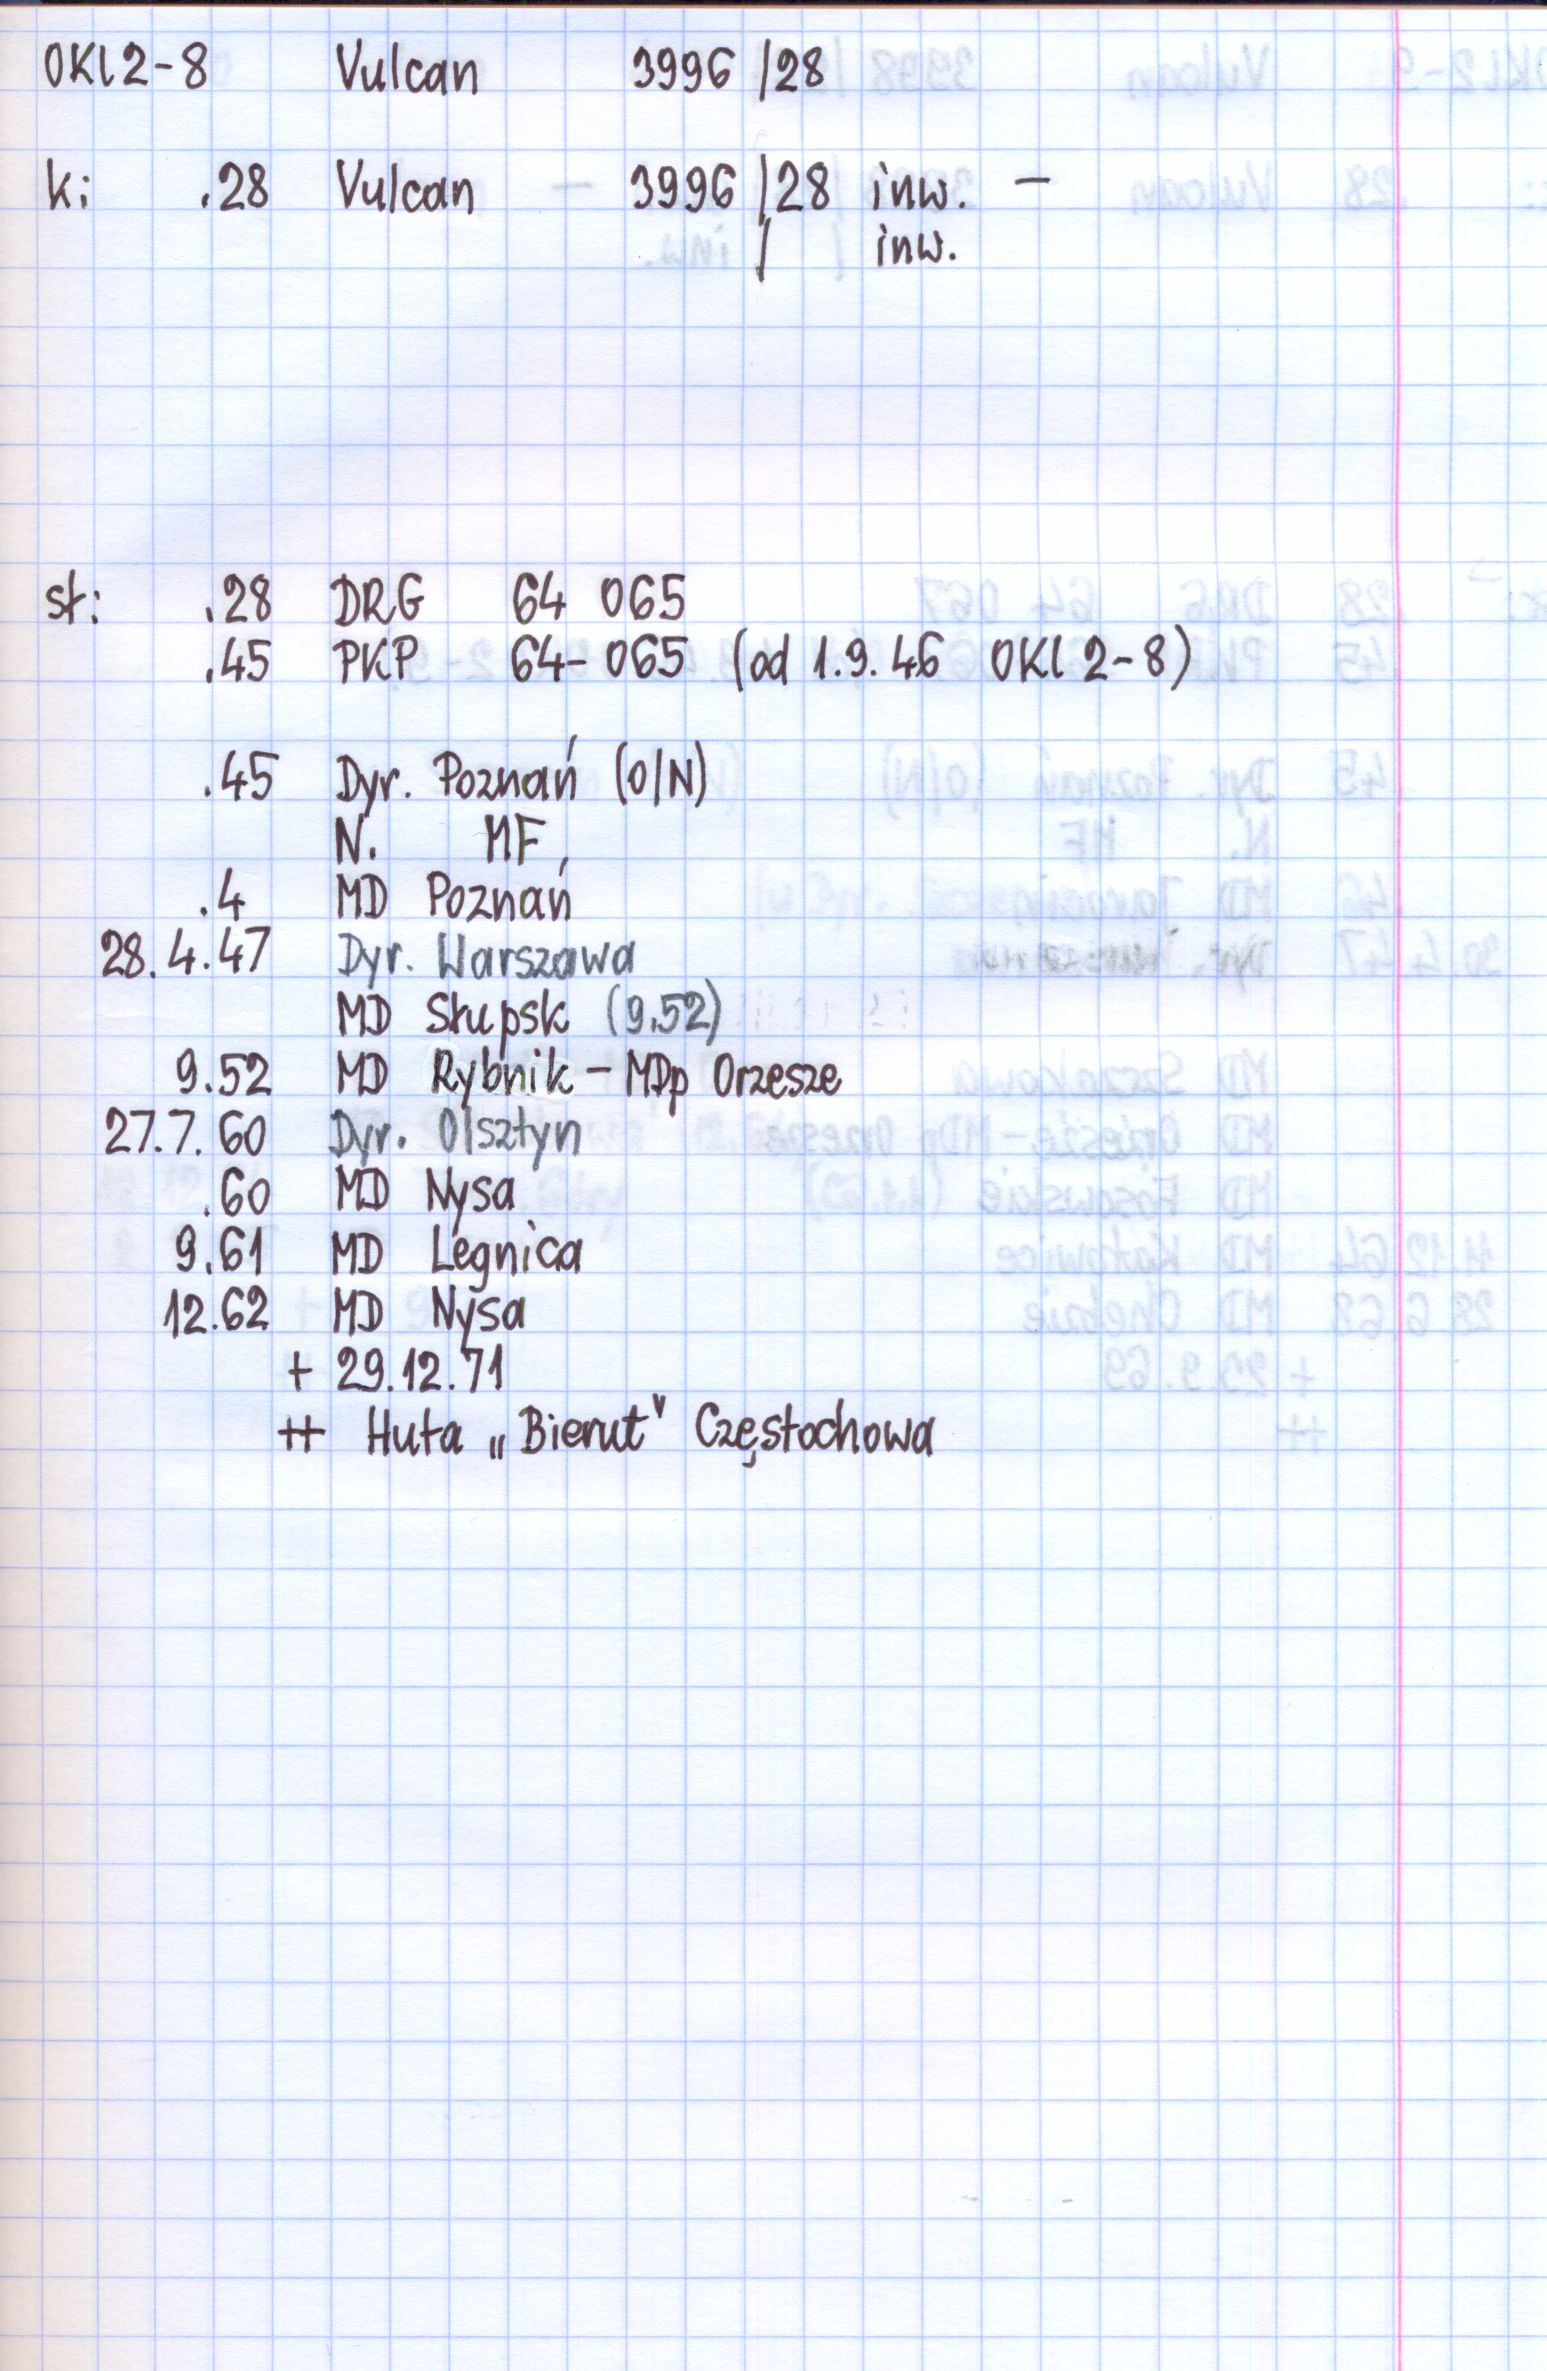 OKl2-8 Vulcan 3996 /28
k: .28 Vulcan 3996 /28 inw. –
/ inw.
st: .28 DRG 64 065
.45 PKP 64-065 (od 1.9.46 OKl 2-8)
.45 Dyr. Poznań (O/N)
N. MF
.4 MD Poznań
28.4.47 Dyr. Warszawa
MD Słupsk (9.52)
9.52 MD Rybnik – MDp Orzesze
27.7.60 Dyr. Olsztyn
.60 MD Nysa
9.61 MD Legnica
12.62 MD Nysa
+ 29.12.71
++ Huta „Bierut" Częstochowa